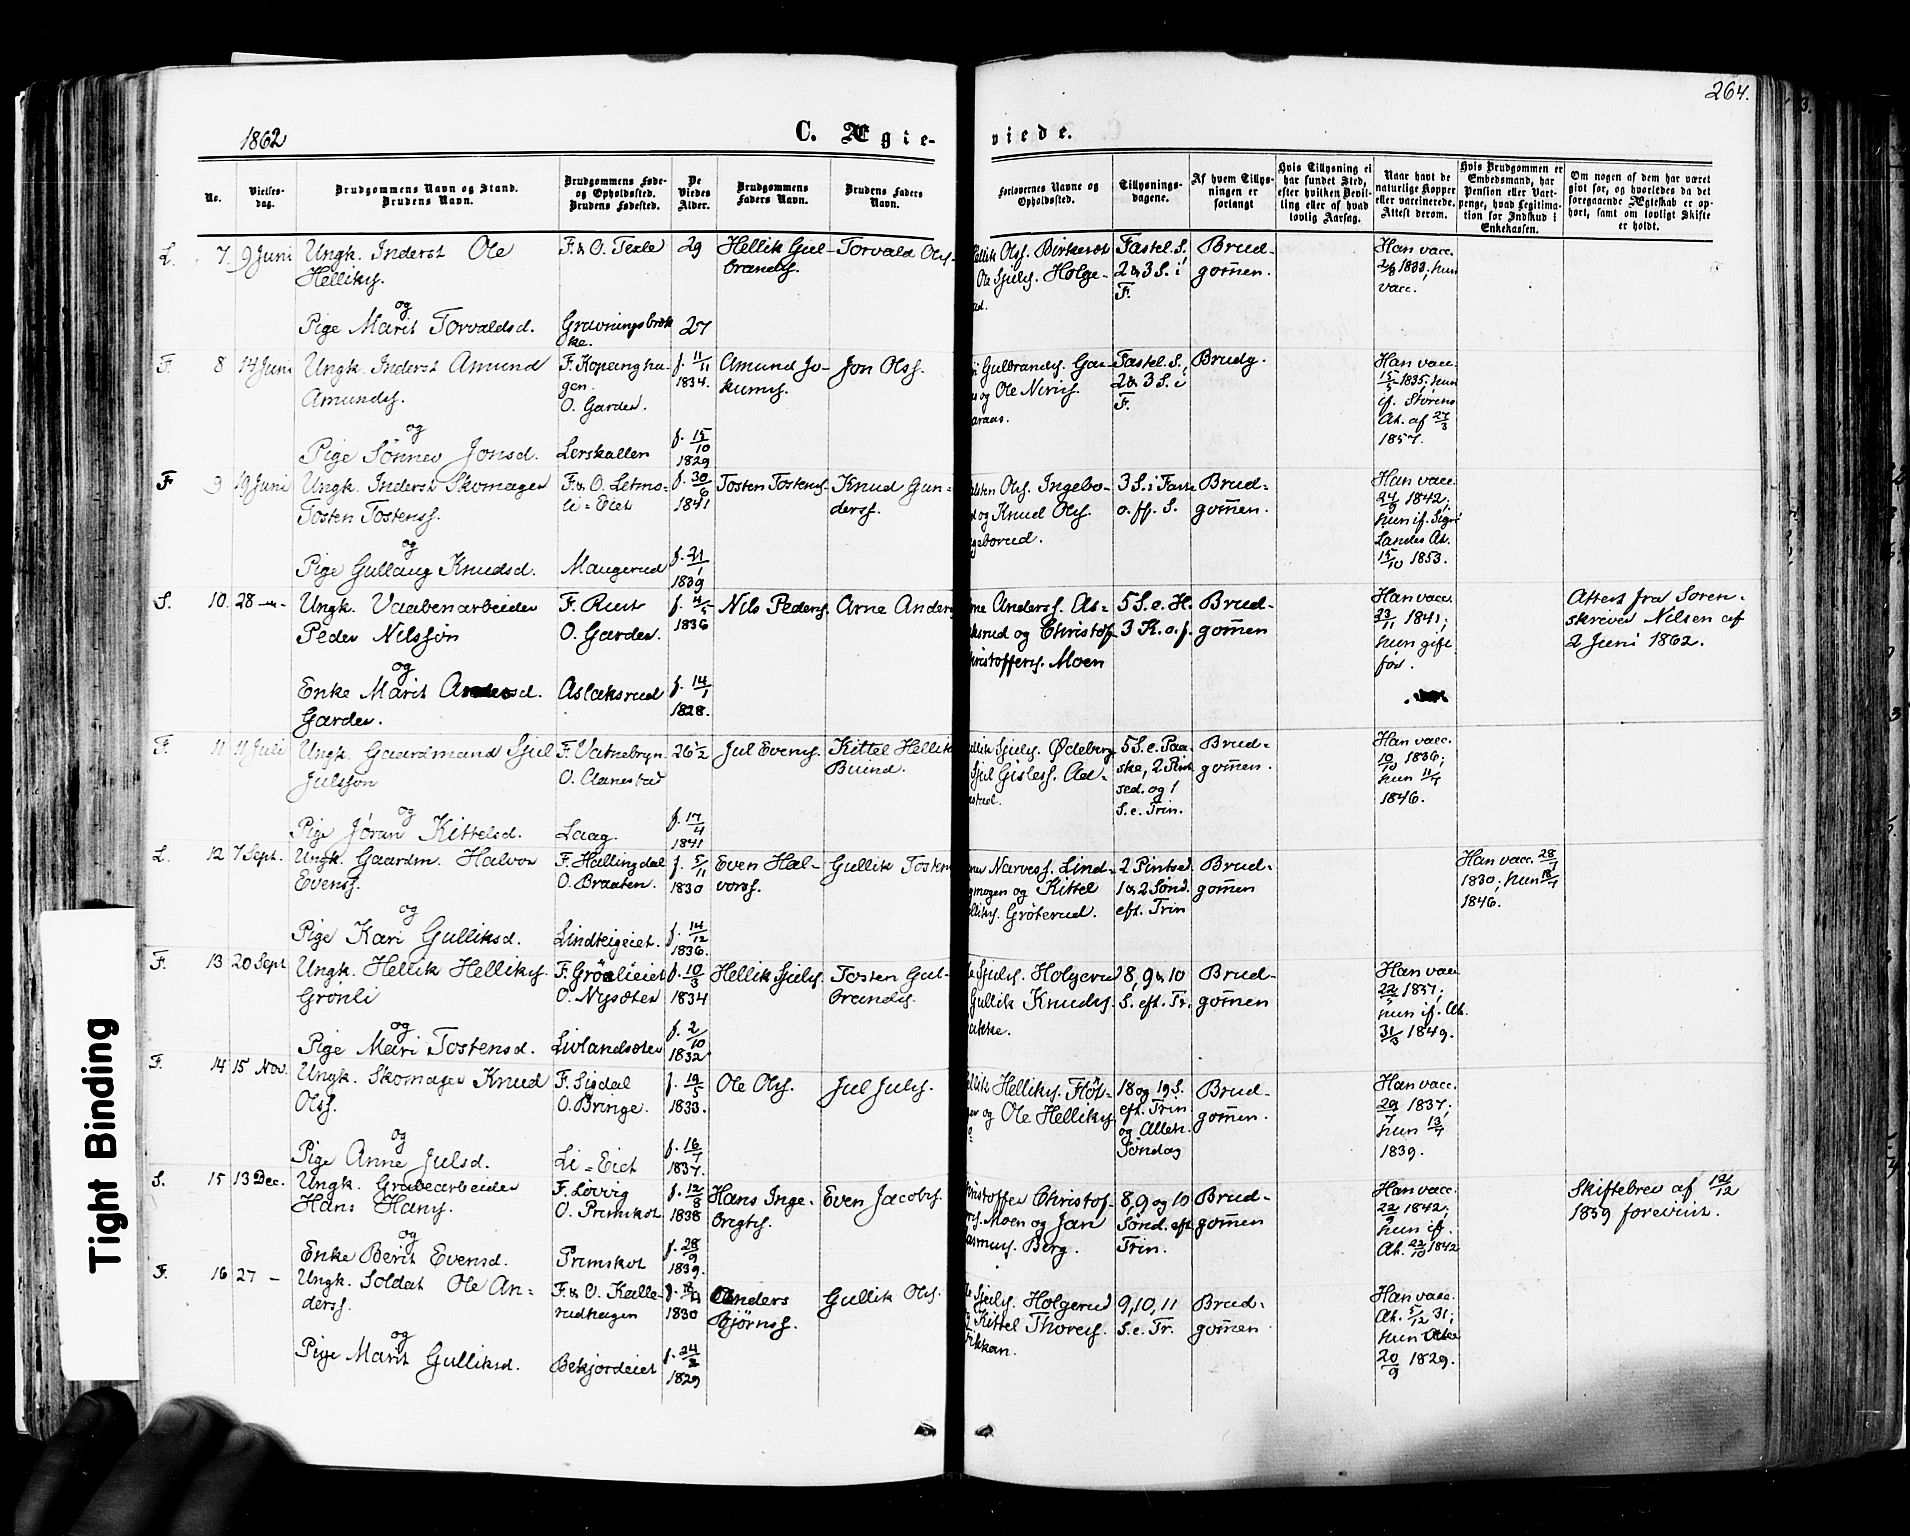 264.
1862
C. Ægte-
viede.
No.
Vielses-
dag.
Brudgommens Navn og Stand.
Brudens Navn.
Brudgommens Føde-
og Opholdssted.
Brudens Fødested.
De
Viedes
Alder.
Brudgommens
Faders Navn.
Brudens Faders
Navn.
Forlovernes Navne og
Opholdssted.
Tillysnings-
dagene.
Af hvem Tillys-
ningen er
forlangt
Hvis Tillysning ei
har fundet Sted,
efter hvilken Bevil-
ling eller af hvad
lovlig Aarsag.
Naar havt de
naturlige Kopper
eller vaccinerede.
Attest derom.
Hvis Brudgommen er
Embedsmand, har
Pension eller Vart-
penge, hvad Legitima-
tion for Indskud i
Enkekassen.
Om nogen af dem har været
gift før, og hvorledes da det
foregaaende Ægteskab er op-
hørt, samt om lovligt Skifte
er holdt.
L. 7. 9 Juni
Ungk. Inderst Ole
Helliks.
og
Pige Marit Torvaldsd.
F. & O. Texle
Gravningsbrek
ke.
29
27
Hellik Gul-
brands.
Torvald Ols.
Ols. Birkeset
Ole Sjuls. Holge-
Fastel. S,
2 & 3 S. i
F.
Brud-
gom̄en.
Han vacc.
1833, hun
vacc.
F. 8 14 Juni
Ungk. Inderst Amund
Amunds.
og
Pige Sønnev Jonsd.
F. Kopeinghu-
gen.
O. Garder.
Lerskallen
f. 11/11
1834.
f. 15/10
1829
Amund Jo-
kums.
Jon Olss.
Gulbrands. Gar-
og Ole Niriss.
Fastel. S.,
2 & 3 S. i
F.
Brudg.
Han vacc.
15/5 1835, hun
if. Størens
At. af 27/3
1857.
F 9 19 Juni
Ungk. Inderst Skomager
Tosten Tostenss.
og
Pige Gullaug Knudsd.
F. & O. Letmo-
li-Eiet
Maugerud
f. 30/6
1841
f. 21/1
1839
Tosten Tostens.
Knud Gun-
derss.
Ols. Ingebo-
og Knud Ols.
3 S. i Faste
o. ff. S.
Brud-
gom̄en.
Han vacc.
24/9 1842;
hun if. Sigr
Landes At.
15/10 1853.
S. 10. 28 -"-
Ungk. Vaabenarbeider
Peder Nilssøn
og
Enke Marit Andersd.
Garder.
F. Rust
O. Garder.
Aslaksrud
f. 4/5
1836
f. 14/1
1828.
Nils Peders.
Arne Anders
Anderss. As-
og Christof-
Moen
5 S. e. H.
3 K. o. f.
Brud-
gom̄en
Han vacc.
23/11 1841;
hun gift
før.
Attest fra Soren-
skriver Nilsen af
2 Juni 1862.
F. 11 11 Juli
Ungk. Gaardmand Sjul
Julssøn
og
Pige Jøran Kittelsd.
F. Vatnebryn
O. Aanestad
Laag.
26 1/2
f. 17/4
1841
Jul Evens.
Kittel Hellik
Buind.
Sjuls. Ødeberg
Sjul Gisless. Aa-
5 S. e. Paa-
ske, 2 Pint
sed. og 1
S. e. Trin.
Brud-
gom̄en.
Han vacc.
10/10 1836;
hun 11/7
1846.
L. 12 7 Sept.
Ungk. Gaardm. Halvor
Evenss.
og
Pige Kari Gulliksd.
F. Hallingdal
O. Braaten.
Lindteigeiet.
f. 5/11
1830
f. 14/12
1836.
Even Hal-
vorss.
Gullik Tosten
Narvess. Lind-
og Kittel
Grøterud.
2 Pintsed
1 & 2 Sønd.
eft. Trin
Brud-
gom̄en
Han vacc. 28/7
1830; hun
1846.
F. 13 20 Sept
Ungk. Hellik Helliks.
Grønli
og
Pige Mari Tostensd.
F. Grønlieiet
O. Nysæter
Livlandsæter
f. 10/3
1834
f. 2/10
1832
Hellik Sjuls.
Tosten Gul-
brands.
Sjuls. Holgerud
Gullik Knuds.
8, 9 & 10
S. eft. Tr.
Brud-
gom̄en
Han vacc
1837;
hun if. At.
31/3 1849.
F. 14 15 Nov.
Ungk. Skomager Knud
Olss.
og
Pige Anne Julsd.
F. Sigdal
O. Bringe.
Li-Eiet
f. 19/5
1833.
f. 16/7
1837.
Ole Ols.
Jul Juls.
Helliks. Fløt-
og Ole Helliks.
18 og 19 S.
eft. Trin
og Alleh.
Søndag
Brud-
gom̄en.
Han vacc.
29/7 1837;
hun 13/7
1839.
S. 15 13 Dec.
Ungk. Grubearbeider
Hans Hans.
og
Enke Berit Evensd.
F. Løvvig
O. Primskot
Primskot
f. 12/8
1838
f. 28/9
1839.
Hans Inge-
brigts.
Even Jacobs.
Christof-
Moen og Jan
Berg.
8, 9 og 10
Sønd. eft
Trin.
Brud-
gom̄en
Han vacc.
22/9 1842;
hun if.
At. 22/10 1842
Skiftebrev af 12/12
1859 forevist.
F. 16 27 -
Ungk. Soldat Ole An-
derss.
og
Pige Marit Gulliksd.
F. & O. Kalle-
rudhagen
Bekjordeiet
1830
f. 24/2
1829
Anders
Bjørnss.
Gullik Ols.
Sjuls. Holgerud
Kittel Thores.
9, 10, 11
S. e. Tr.
Brud-
gom̄en
Han vacc.
At. 5/12 31;
hun
20/9 1829.
Tight Binding